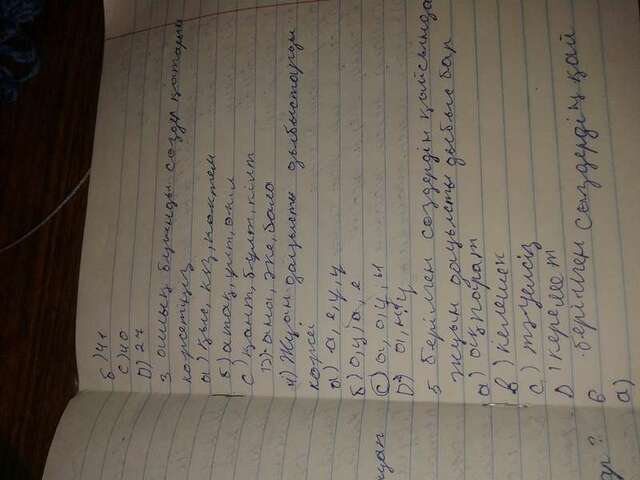 б) 41
с) 40
D) 27
3 ашық буынды сөздер қатарын
көрсетіңіз
а) қыс, күз, көктем
б) атақ, ұлт, өкіл
с) қант, бұлт, кілт
D) ана, әке, бала
4) Жуан дауысты дыбыстарды
көрсет
а) а, е, у, у
б) о, ұ, а, е
с) а, о, ұ, ы
D) а, ы, у
5 берілген сөздердің қайсында
жуын дауысты дыбыс бар
а) ақпарат
в) келешек
с) тәуелсіз
D) керемет
6 берілген сөздердің қай
а)